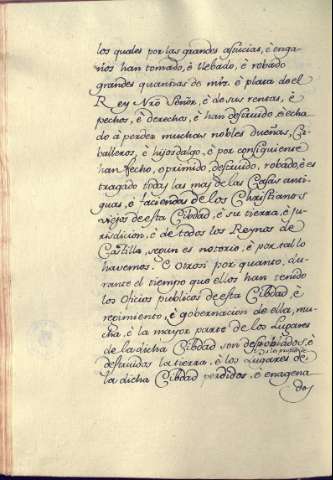 los quales por las grandes astucias, è enga-
ños han tomado, è llebado, è robado
grandes quantias de mrs. è plata de el
Rey Nrõ Señor, è de sus rentas, è
pechos, è derechos, è han destruido, è echa-
do à perder muchas nobles dueñas, Ca-
balleros, è hijosdalgo, è por consiguiense
han fecho, oprimido, destruido, robado, è es-
tragado todas las mas de las Casas anti-
guas, è faciendas de los Christianos
viejos de esta Cibdad, è su tierra, è ju-
risdicion, è de todos los Reynos de
Castilla, segun es notorio, è por tal lo
havemos. E otrosi por quanto, du-
rante el tiempo que ellos han tenido
los Oficios publicos de esta Cibdad, è
regimiento, è gobernacion de ella, mu-
cha, è la mayor parte de los Lugares
de la dicha Cibdad son despoblados, è
destruidas la tierra, è los Lugares de
la dicha Cibdad perdidos, è enagena-
dos